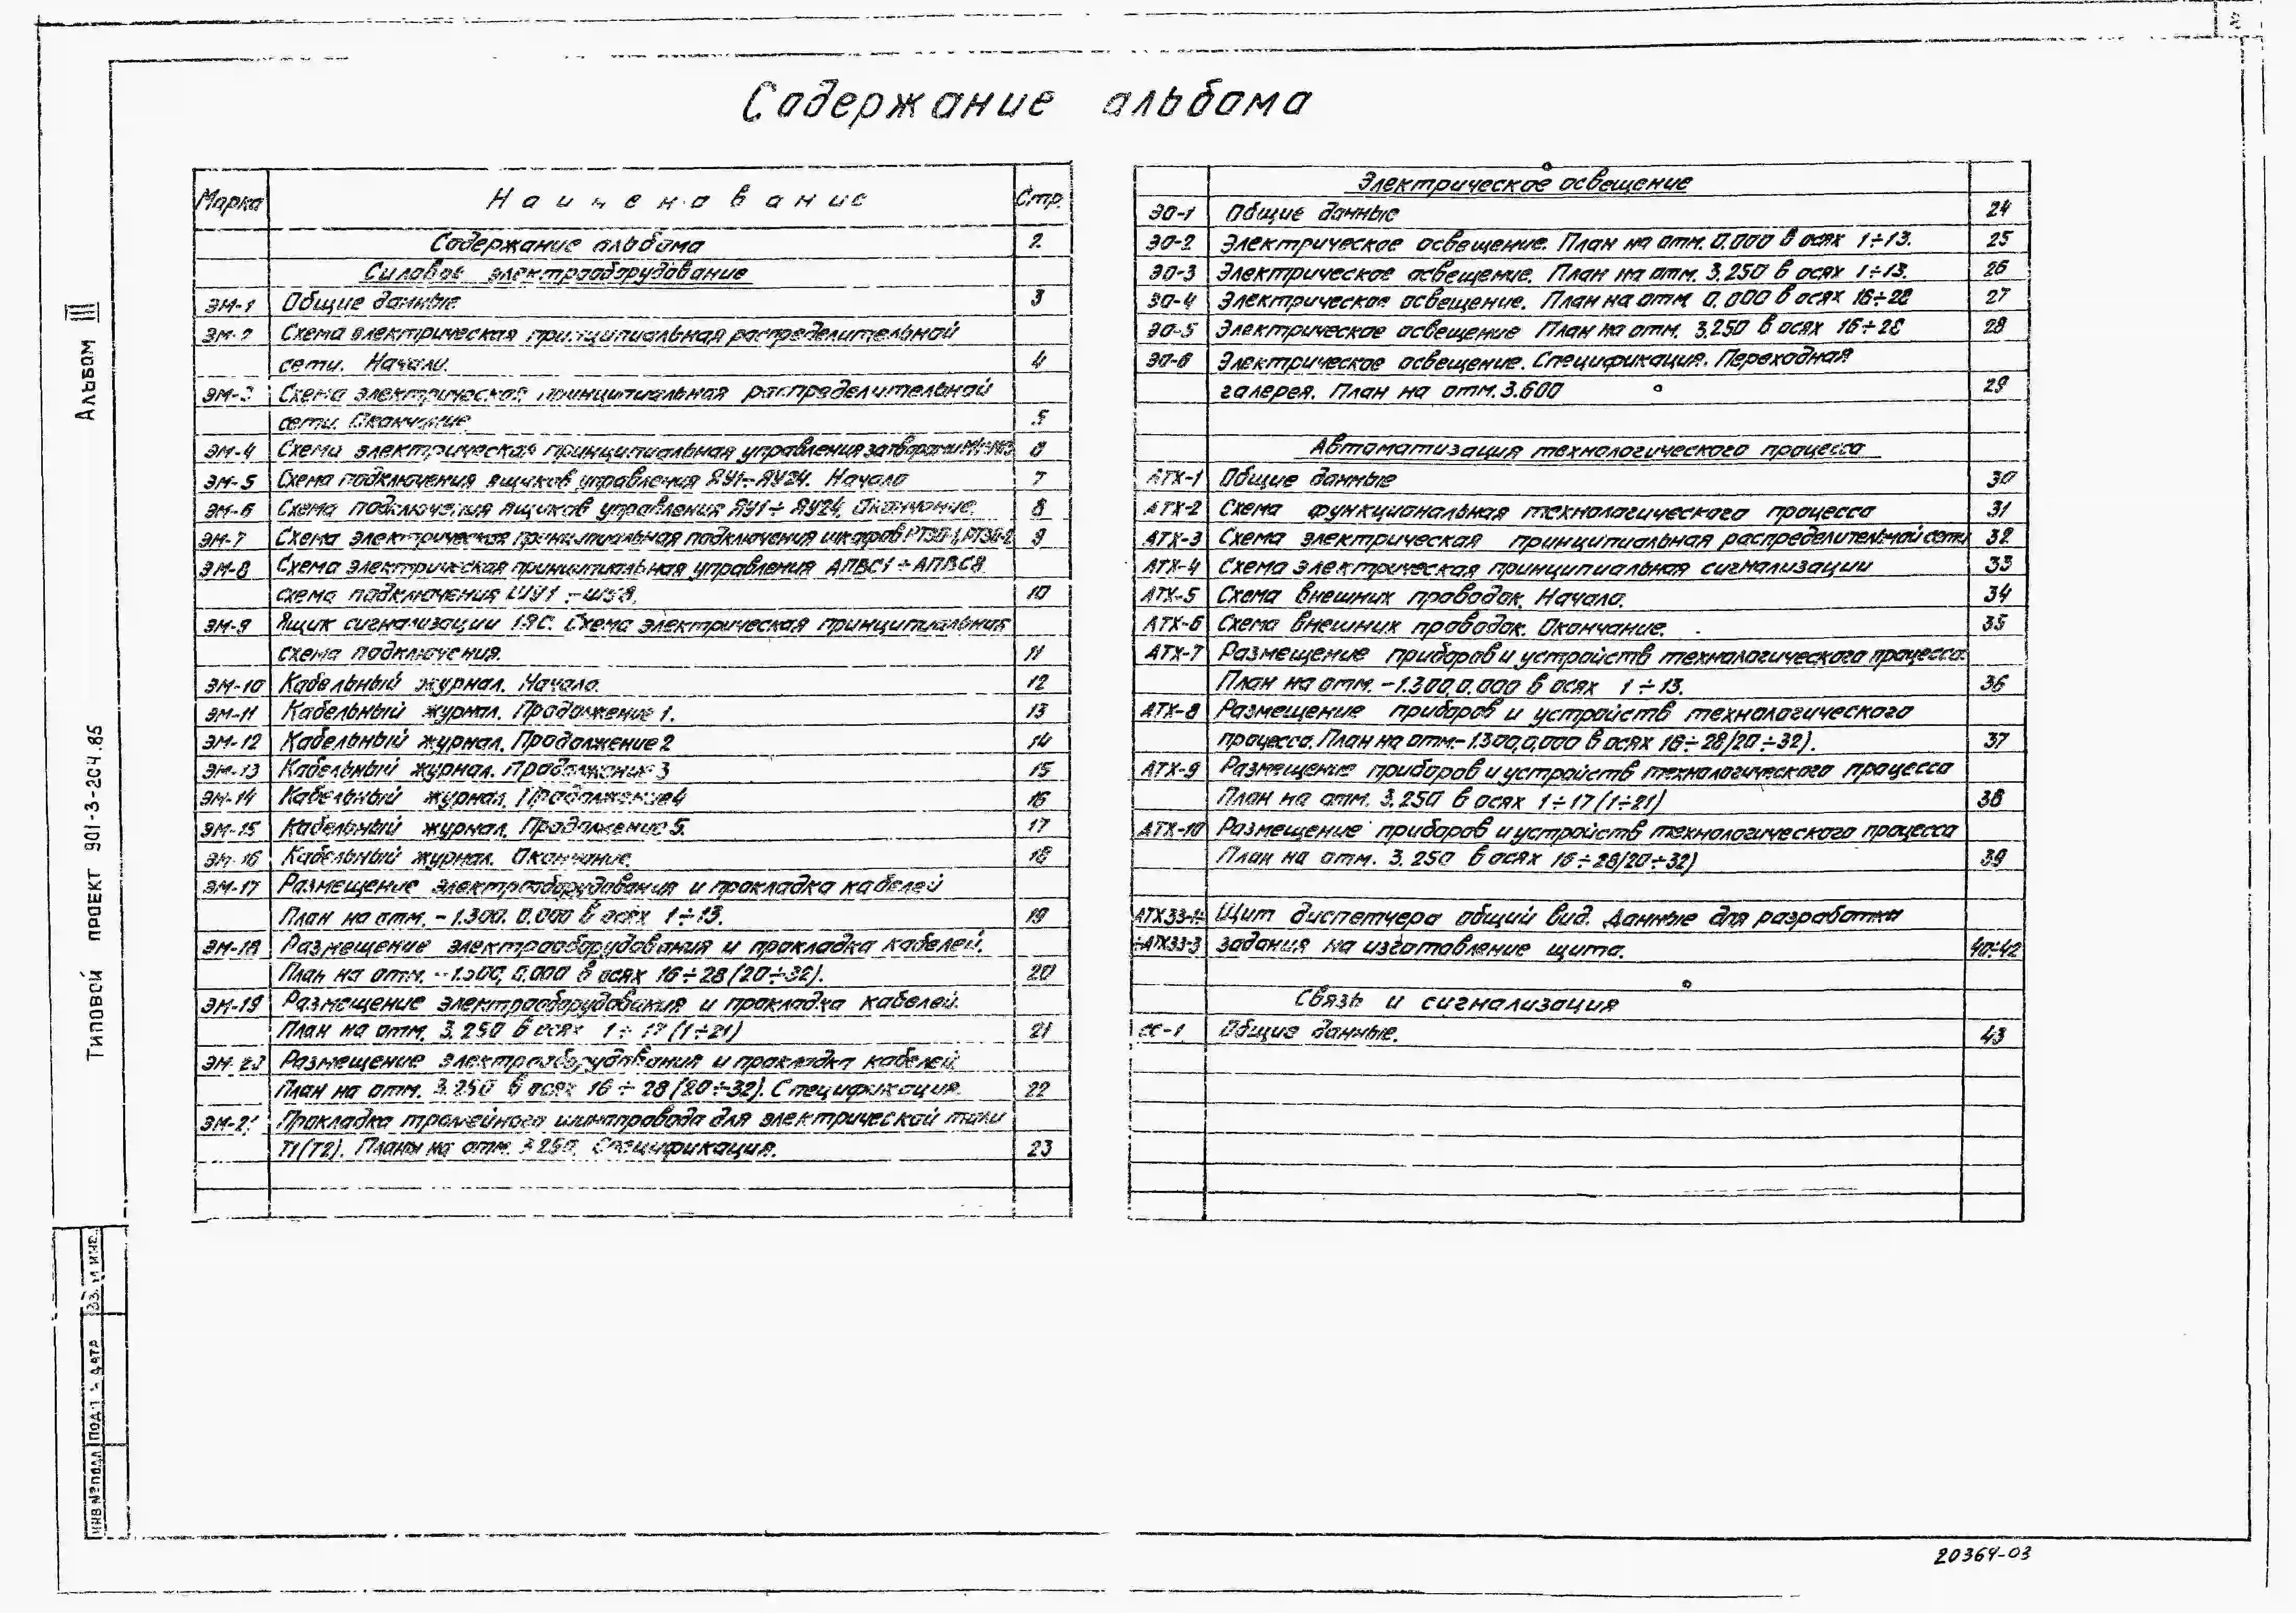 Содержание альбома
Альбом III
Типовой проект 901-3-204.85
Марка Наименование Стр.
Содержание альбома 2
Силовое электрооборудование
ЭМ-1 Общие данные 3
ЭМ-2 Схема электрическая принципиальная распределительной
сети. Начало. 4
ЭМ-3 Схема электрическая принципиальная распределительной
сети. Окончание 5
ЭМ-4 Схема электрическая принципиальная управления затворами 6
ЭМ-5 Схема подключения ящиков управления ЯУ1÷ЯУ24. Начало 7
ЭМ-6 Схема подключения ящиков управления ЯУ1÷ЯУ24. Окончание. 8
ЭМ-7 Схема электрическая принципиальная подключения шкафов РТ30-1, РТ30-2 9
ЭМ-8 Схема электрическая принципиальная управления АПВС1÷АПВС8
схема подключения ШУ1÷ШУ8. 10
ЭМ-9 Ящик сигнализации 1ЯС. Схема электрическая принципиальная
схема подключения. 11
ЭМ-10 Кабельный журнал. Начало. 12
ЭМ-11 Кабельный журнал. Продолжение 1. 13
ЭМ-12 Кабельный журнал. Продолжение 2 14
ЭМ-13 Кабельный журнал. Продолжение 3 15
ЭМ-14 Кабельный журнал. Продолжение 4 16
ЭМ-15 Кабельный журнал. Продолжение 5. 17
ЭМ-16 Кабельный журнал. Окончание. 18
ЭМ-17 Размещение электрооборудования и прокладка кабелей
План на отм. -1.300. 0.000 в осях 1÷13. 19
ЭМ-18 Размещение электрооборудования и прокладка кабелей.
План на отм. -1.300, 0.000 в осях 16÷28 (20÷32). 20
ЭМ-19 Размещение электрооборудования и прокладка кабелей.
План на отм. 3.250 в осях 1÷17 (1÷21) 21
ЭМ-20 Размещение электрооборудования и прокладка кабелей.
План на отм. 3.250 в осях 16÷28 (20÷32). Спецификация. 22
ЭМ-21 Прокладка троллейного шинопровода для электрической тали
Т1(Т2). Планы на отм. 3.250. Спецификация. 23
Электрическое освещение
ЭО-1 Общие данные 24
ЭО-2 Электрическое освещение. План на отм. 0.000 в осях 1÷13. 25
ЭО-3 Электрическое освещение. План на отм. 3.250 в осях 1÷13. 26
ЭО-4 Электрическое освещение. План на отм. 0.000 в осях 16÷28 27
ЭО-5 Электрическое освещение План на отм. 3.250 в осях 16÷28 28
ЭО-6 Электрическое освещение. Спецификация. Переходная
галерея. План на отм. 3.600 29
Автоматизация технологического процесса
АТХ-1 Общие данные 30
АТХ-2 Схема функциональная технологического процесса 31
АТХ-3 Схема электрическая принципиальная распределительной сети 32
АТХ-4 Схема электрическая принципиальная сигнализации 33
АТХ-5 Схема внешних проводок. Начало. 34
АТХ-6 Схема внешних проводок. Окончание. 35
АТХ-7 Размещение приборов и устройств технологического процесса.
План на отм. -1.300, 0.000 в осях 1÷13. 36
АТХ-8 Размещение приборов и устройств технологического
процесса. План на отм. -1.300, 0.000 в осях 16÷28 (20÷32). 37
АТХ-9 Размещение приборов и устройств технологического процесса
План на отм. 3.250 в осях 1÷17 (1÷21) 38
АТХ-10 Размещение приборов и устройств технологического процесса
План на отм. 3.250 в осях 16÷28 (20÷32) 39
АТХ33-1÷ Щит диспетчера общий вид. Данные для разработки
÷АТХ33-3 задания на изготовление щита. 40÷42
Связь и сигнализация
СС-1 Общие данные. 43
Инв № подл Подп и дата Вз. и инв.
20364-03